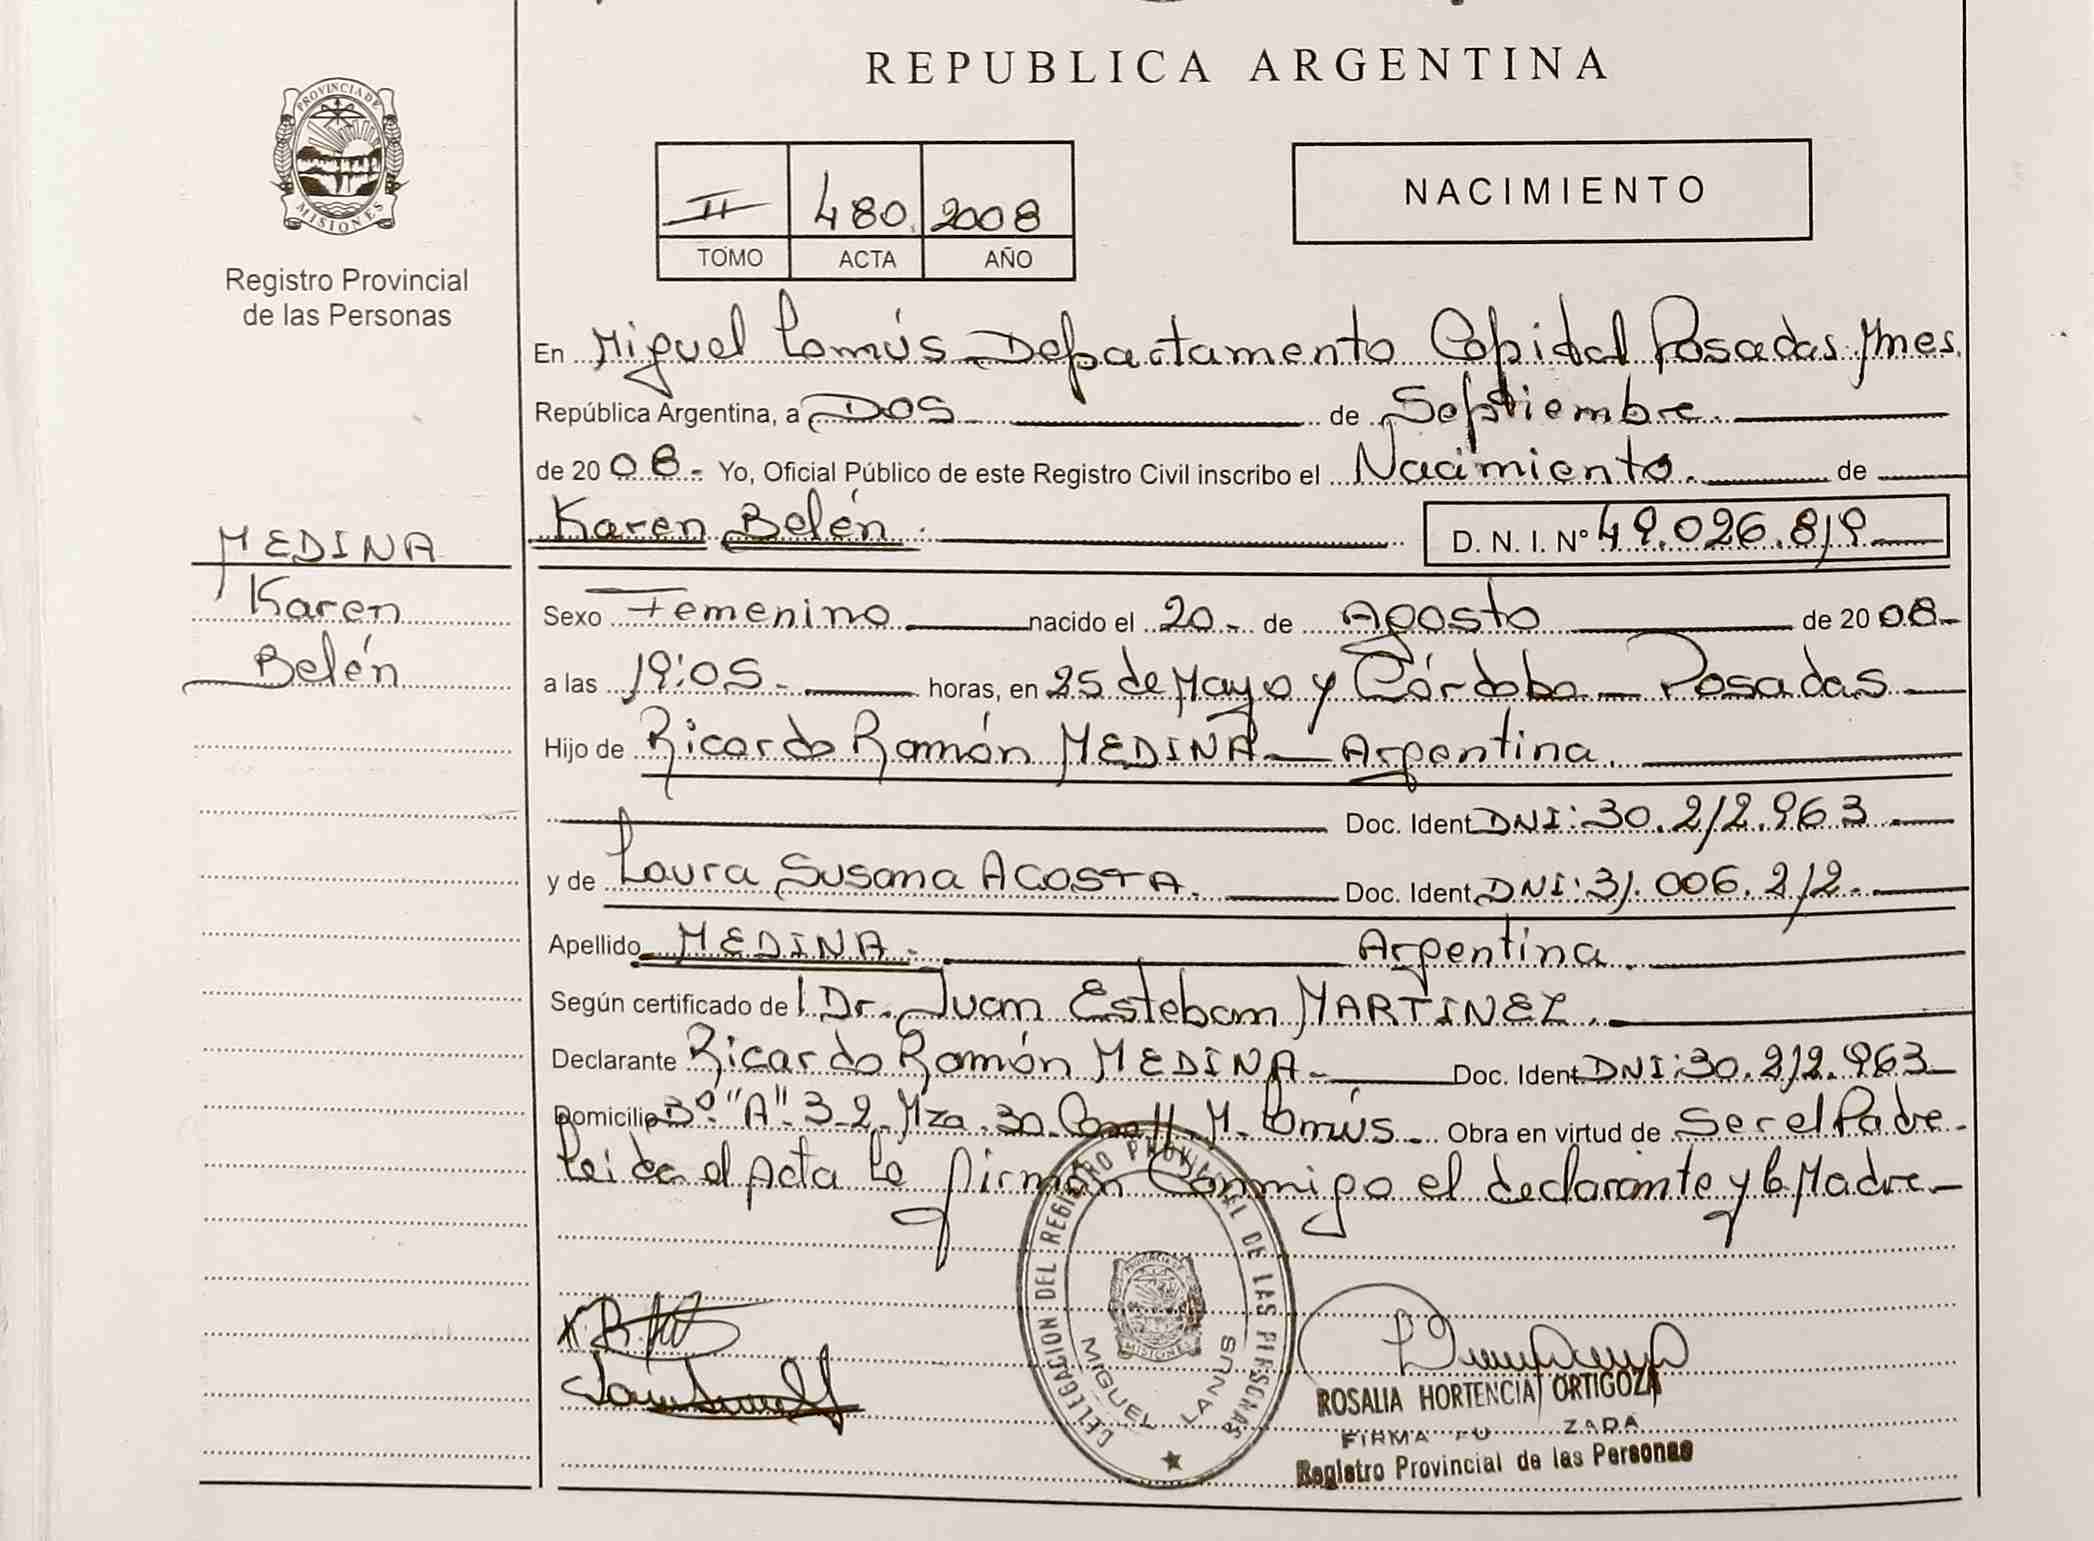 REPUBLICA ARGENTINA
PROVINCIA DE
MISIONES
Registro Provincial
de las Personas
II 480. 2008
TOMO ACTA AÑO
NACIMIENTO
En Miguel Lanús Departamento Capital Posadas Mnes.
República Argentina, a DOS de Septiembre.
de 20 08.- Yo, Oficial Público de este Registro Civil inscribo el Nacimiento. de
Karen Belén. D. N. I. Nº 49.026.819
MEDINA
Karen
Belén
Sexo Femenino nacido el 20.- de Agosto de 20 08.-
a las 19:05.- horas, en 25 de Mayo y Córdoba - Posadas
Hijo de Ricardo Ramón MEDINA - Argentina.
Doc. Ident. DNI: 30.212.963
y de Laura Susana ACOSTA. Doc. Ident. DNI: 31.006.212.
Apellido MEDINA. Argentina.
Según certificado de Dr. Juan Esteban MARTINEZ.
Declarante Ricardo Ramón MEDINA. Doc. Ident. DNI: 30.212.963
Domicilio 3º "A" 3-2 Mza. 30. M. Lanús Obra en virtud de Ser el Padre.
Leída el Acta la firman conmigo el declarante y la Madre
DELEGACION DEL REGISTRO PROVINCIAL DE LAS PERSONAS
PROVINCIA DE
MISIONES
MIGUEL LANUS
ROSALIA HORTENCIA ORTIGOZA
FIRMA
Registro Provincial de las Personas